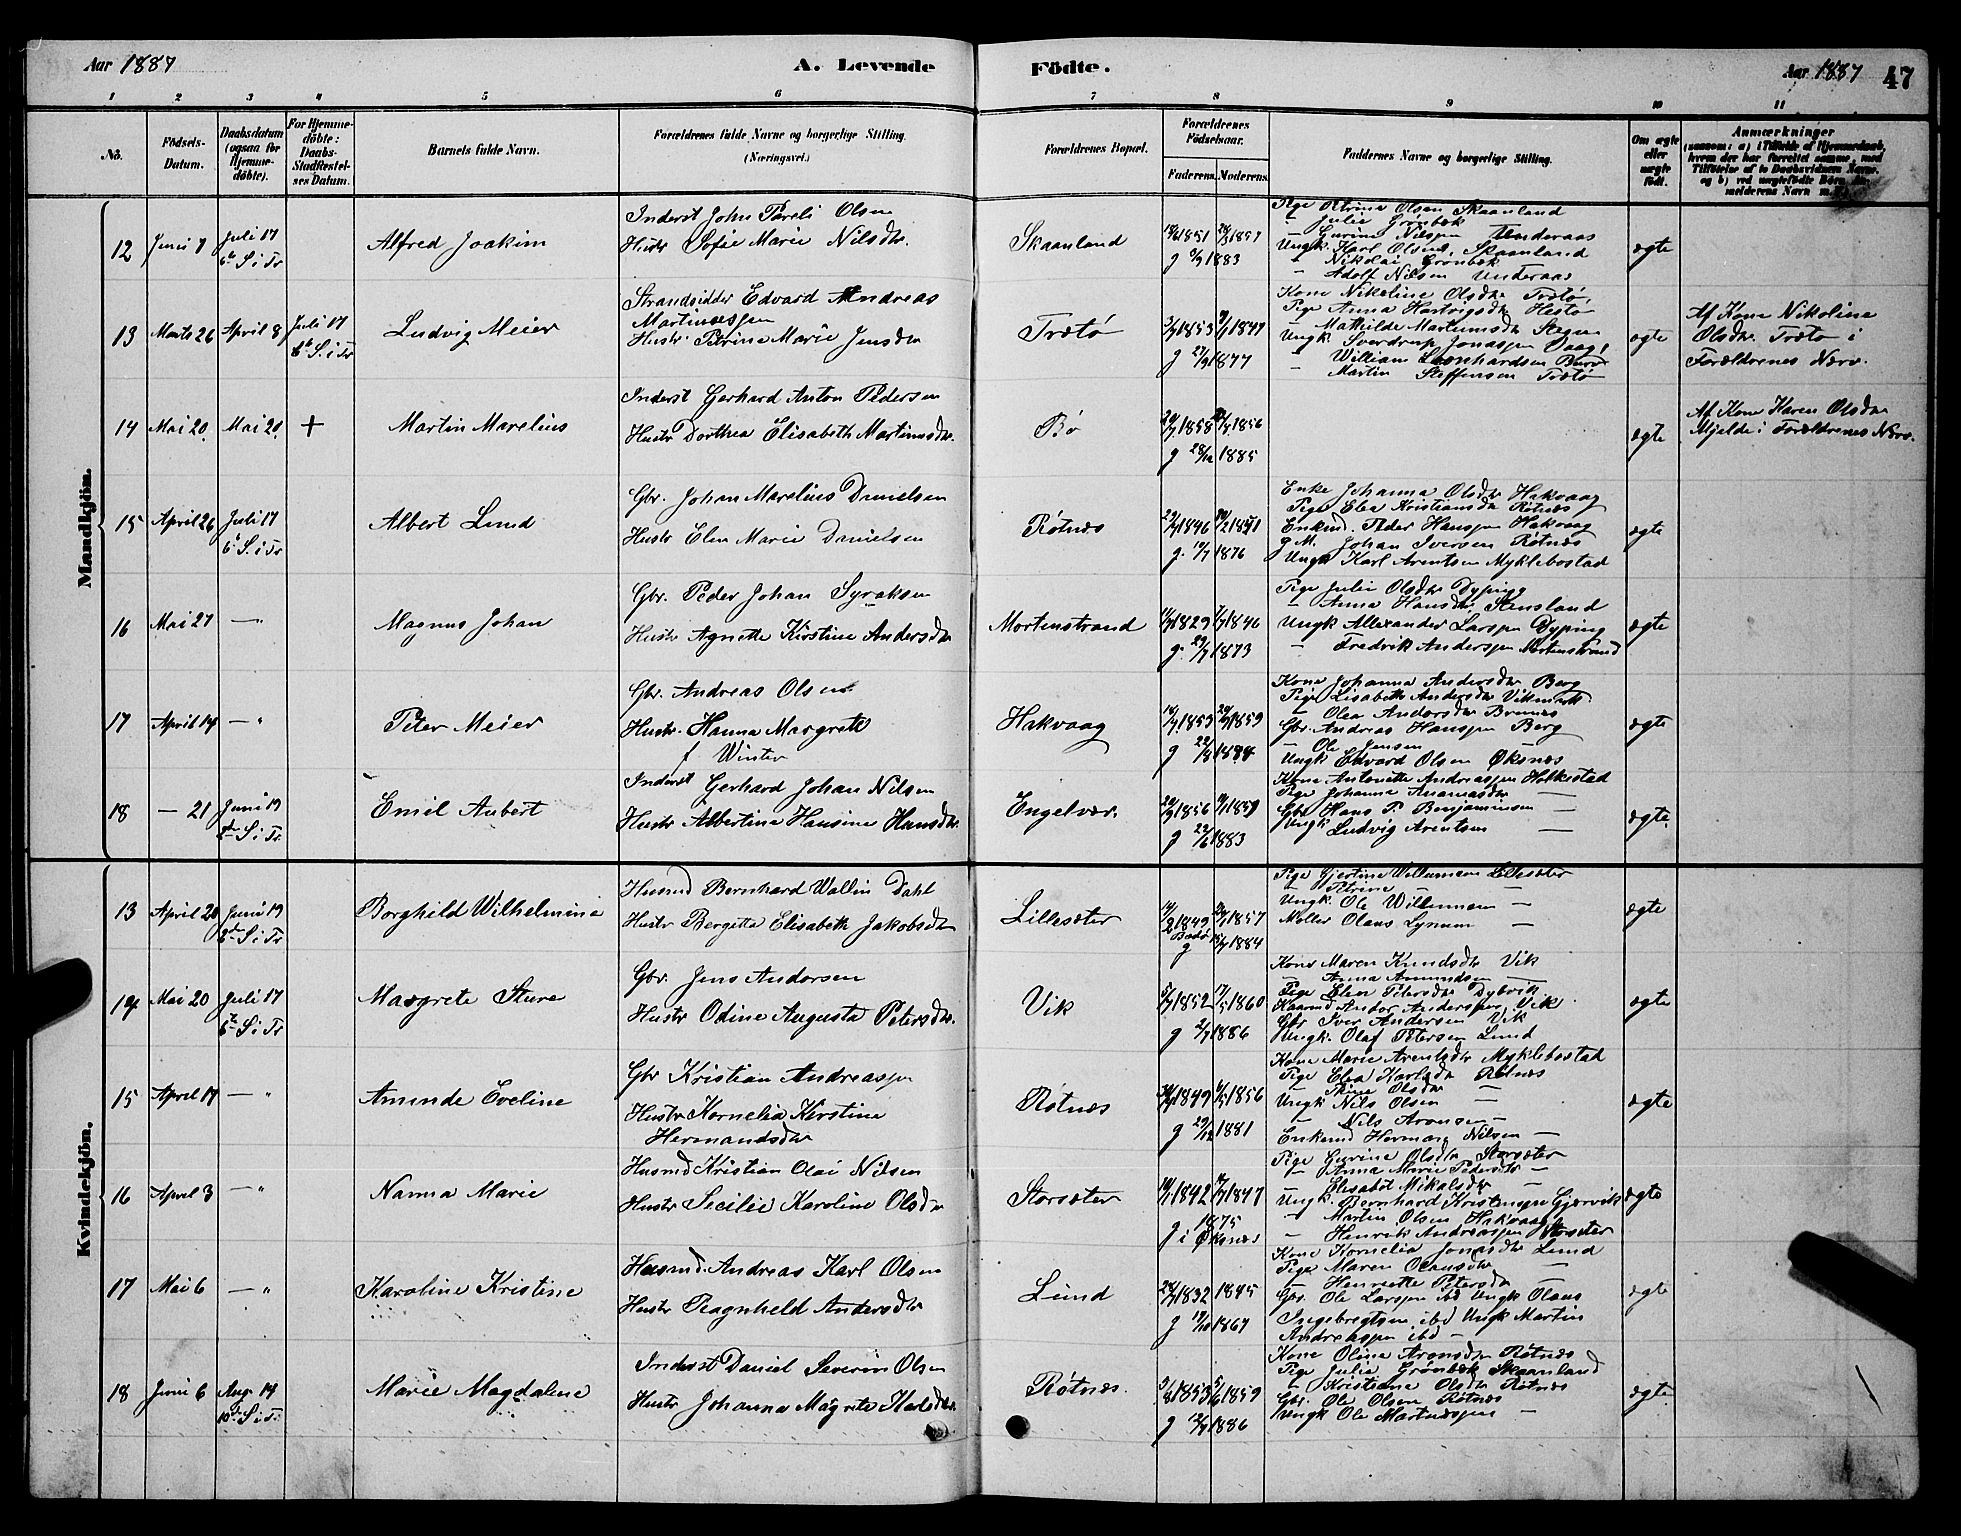 Aar 1887
A. Levende Födte.
Aar 1887 47
1 2 3 4 5 6 7 8 9 10 11
No.
Födsels-Datum.
Daabsdatum (ogsaa for Hjemme-döbte).
For Hjemme-döbte: Daabs-Stadfæstel-ses Datum.
Barnets fulde Navn.
Forældrenes fulde Navne og borgerlige Stilling. (Næringsvei.)
Forældrenes Bopæl.
Forældrenes Födselsaar.
Faderens. Moderens.
Faddernes Navne og borgerlige Stilling.
Om ægte eller uægte födt.
Anmærkninger
Mandkjön.
12 Juni 7 Juli 17 Alfred Joakim
6te S. i Tr
Inderst John Pareli Olsen
Hustr Sofie Marie Nilsdtr.
Skaanland
1851 1857
g 1883
Pige Petrine Olsen Skaanland
– Julie Grønbæk
– Gurine Nilsen Underaas
Ungk. Karl Olsen Skaanland
– Nikolai Grønbæk
– Adolf Nilsen Underaas
ægte
13 Marts 26 April 8 Juli 17 Ludvig Meier
6te S. i Tr
Strandsidder Edvard Andreas
Martinussen
Hustr Petrine Marie Jensdtr
Trætø
1853 1847
g 1877
Kone Nikoline Olsdtr Trætø
Pige Anna Hartvigsdtr Hestø
Mathilde Martinusdtr Stegen
Ungk Sverdrup Jonassen Vaag
– William Leonhardsen
– Martin Steffensen Trætø
ægte
Af Kone Nikoline
Olsdtr. Trætø i
Forældrenes Nærv.
14 Mai 20. Mai 21 + Martin Marelius
Inderst Gerhard Anton Pedersen
Hustr Dorthea Elisabeth Martinusdtr.
Bø
1858 1856
g 28/12 1885
ægte
Af Kone Karen Olsdtr
Mjelde i Forældrenes Nærv.
15 April 26 Juli 17 Albert Lund
6te S. i Tr
Gbr. Johan Marelius Danielsen
Hustr Elen Marie Danielsen
Røtnæs
1846 1851
g. 1876
Enke Johanna Olsdtr Hakvaag
Pige Elea Kristiansdtr Røtnæs
Enkmd. Peder Hanssen Hakvaag
G.M. Johan Iversen Røtnæs
Ungk Karl Arentsen Myklebostad
ægte
16 Mai 27 – " Magnus Johan
Gbr. Peder Johan Syraksen
Hustr Agnette Kirstine Andersdtr
Mortenstrand
1829 1846
g. 1873
Pige Julie Olsdtr Dyping
– Anna Hansdtr Stensland
Ungk Alexander Larssen Dyping
– Fredrik Anderssen Mortenstrand
ægte
17 April 14 – " Peter Meier
Gbr. Andreas Olsen
Hustr. Hanna Margrete
f Winter
Hakvaag
1859
g
Kone Johanna Andersdtr Berg
Pige Lisabeth Andersdtr
– Olea Andersdtr
Gbr. Andreas Hanssen Berg
– Ole Jensen
Ungk Edvard Olsen Øksnæs
ægte
18 – 21 Juni 19 Emil Aubert
2den S. i Tr.
Inderst Gerhard Johan Nilsen
Hustr Albertine Hansine Hansdtr.
Engelvær.
1856 1859
g 1883
Kone Antonette Andreassen Helkestad
Pige Johanna Ananiasdtr –
Gbr Hans P. Benjaminsen –
Ungk Ludvig Arentsen –
ægte.
Kvindekjön.
13 April 20 Juni 19 Borghild Wilhelmine
2den S. i Tr
Husmd Bernhard Wallin Dahl
Hustr Bergitta Elisabeth Jakobsdtr
Lillesæter
1849 1857
Bodø
g 1884
Pige Gjertine Willumsen Lillesæter
– Petrine –
Ungk Ole Willumsen –
Møller Olaus Lynum –
ægte
14 Mai 20 Juli 17 Margrete Sture
6te S. i Tr
Gbr. Jens Andorsen
Hustr Odine Augusta Petersdtr.
Vik
1852 1860
g 1886
Kone Maren Knudsdtr Vik
– Anna Amundsen –
Pige Elen Petersdtr Dybvik
Kaarmd Andor Anderssen Vik
Gbr Iver Andersen Vik
Ungk. Olaf Petersen Lund
ægte
15 April 17 – " Amunde Eveline
Gbr Kristian Andreassen
Hustr Kornelia Kirstine
Hermandsdtr
Røtnæs
1849 1856
g 29/12 1881
Kone Marie Arentsdtr Myklebostad
Pige Elea Karlsdtr Røtnæs
– Stine Olsdtr –
Ungk Nils Olsen –
Nils Aronsen –
Enkemd Herman Nilsen –
ægte
16 April 3 – " Nanna Marie
Husmd Kristian Olai Nilsen
Hustr Secilie Karoline Olsdtr
Storsæter
1842 1847
g 1875
i Øksnæs
Pige Gurine Olsdtr Storsæter
– Anna Marie Pedersdtr –
– Elisabet Mikalsdtr –
Ungk. Bernhard Kristensen Gjærvik
– Martin Olsen Hakvaag
– Henrik Andreassen Storsæter
ægte
17 Mai 6 – " Karoline Kristine
Husmd. Andreas Karl Olsen
Hustr Ragnhild Andersdtr
Lund
1832 1845
g 1867
Kone Kornelia Jonasdtr Lund
Pige Maren Olausdtr –
– Henriette Petersdtr –
Gbr. Ole Larssen ibd Ungk Olaus
Ingebregtsen ibd Ungk Martin
Andreassen ibd –
ægte
18 Juni 6 Aug. 14 Marie Magdalene
10de S. i Tr.
Inderst Daniel Severin Olsen
Hustr Johanna Magrete Karlsdtr.
Røtnæs.
1853 1859
g 1886
Kone Olina Aronsdtr Røtnæs
Pige Julia Grønbæk Skaanland
– Kristiane Olsdtr Røtnæs
Gbr. Ole Olsen Røtnæs
Ungk Ole Martinussen –
ægte